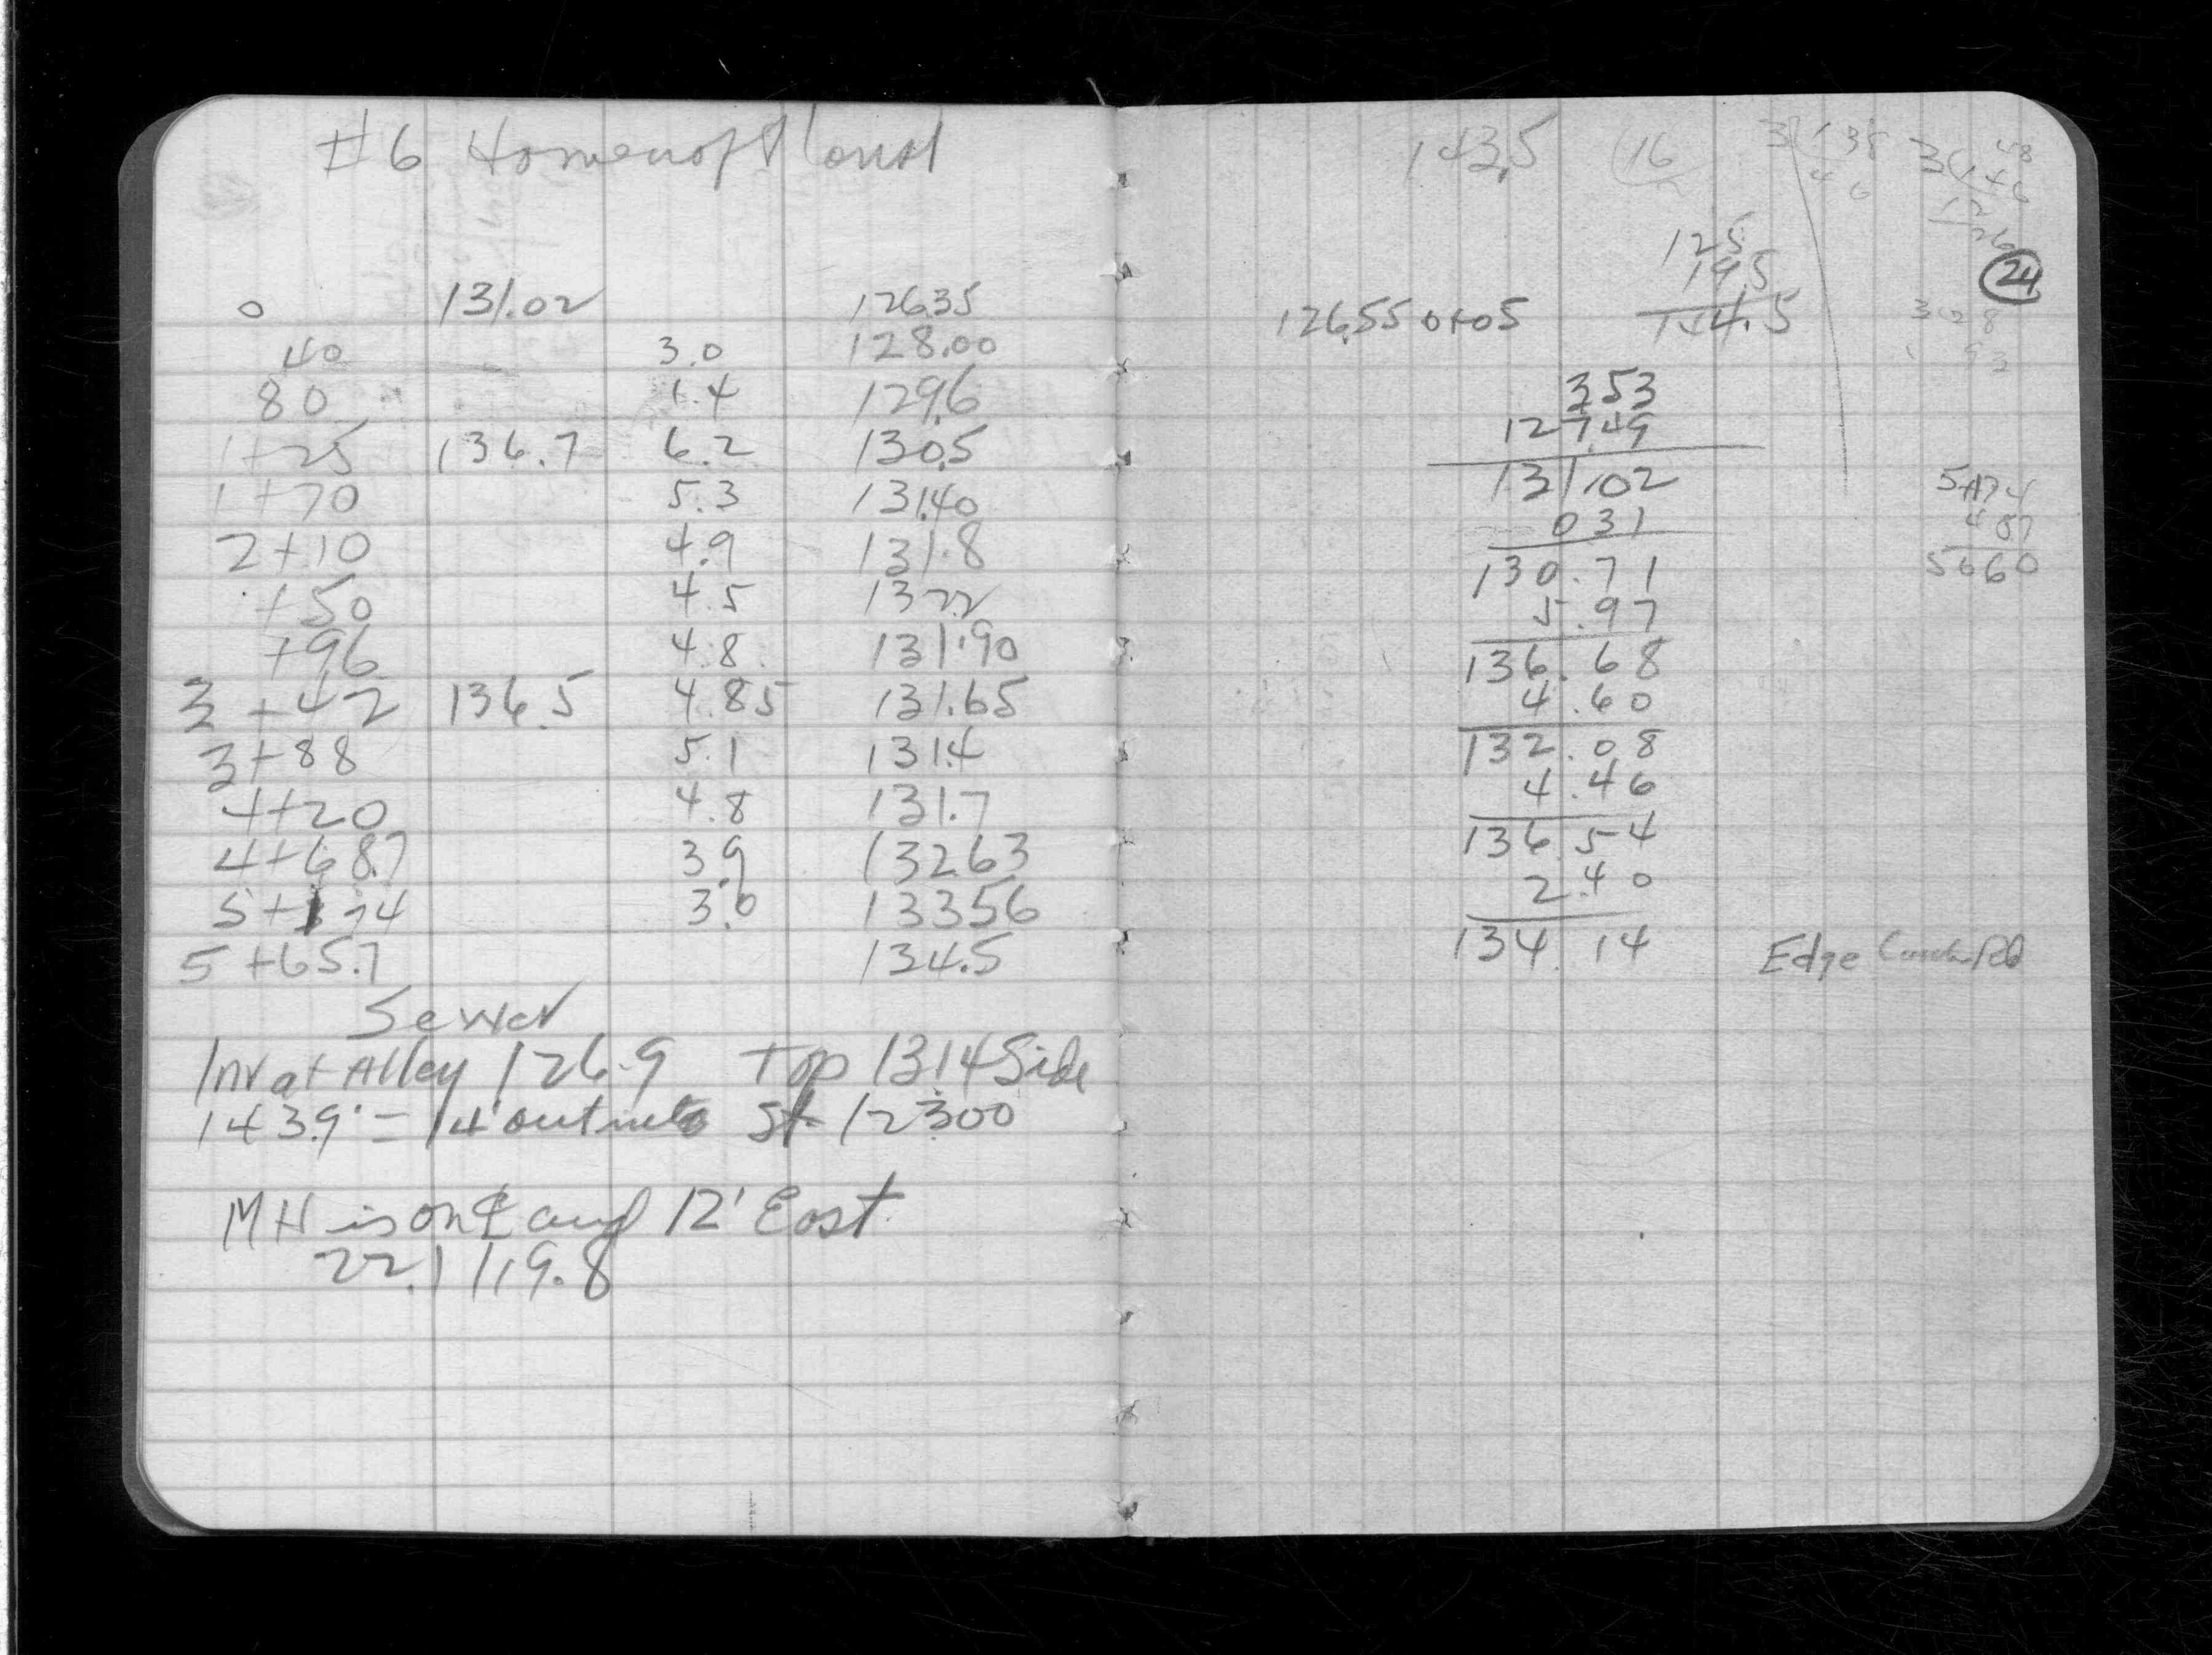 #6 Homecroft Const
0 131.02 126.35
40 3.0 128.00
80 1.4 129.6
1+25 136.7 6.2 130.5
1+70 5.3 131.40
2+10 4.9 131.8
+50 4.5 132.2
+96 4.8 131.90
3+42 136.5 4.85 131.65
3+88 5.1 131.4
4+20 4.8 131.7
4+68.7 3.9 132.63
5+174 3.0 133.56
5+65.7 134.5
Sewer
Inv at Alley 126.9 Top 131.4 Side
143.9' = 14' out into St 123.00
MH is on ℄ and 12' East
22.1 119.8
143.5 16 3 138
46
3 146
48
12
26
125
19.5
144.5
24
126.55 0+05
3.53
127.49
131.02
0 31
130.71
5.97
136.68
4.60
132.08
4.46
136.54
2.40
134.14 Edge
5+174
487
5660